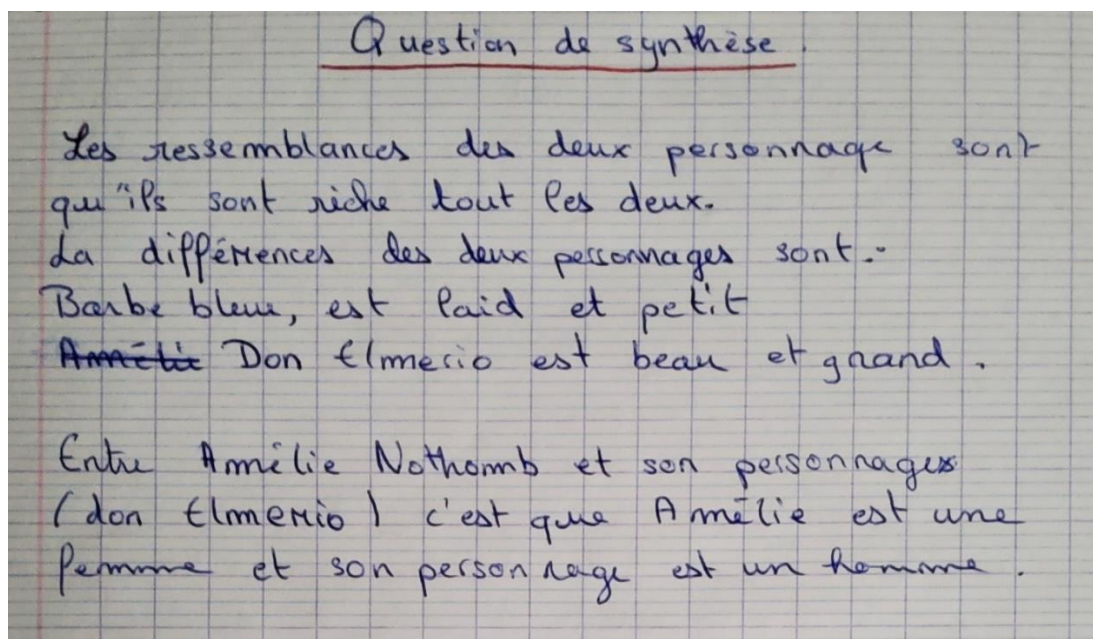 Question de synthèse.
Les ressemblances des deux personnage sont
qu'ils sont riche tout les deux.
La différences des deux personnages sont.-
Barbe bleue, est laid et petit
Amélie Don Elmerio est beau et grand.
Entre Amélie Nothomb et son personnages
(don Elmerio) c'est que Amélie est une
femme et son personnage est un homme.